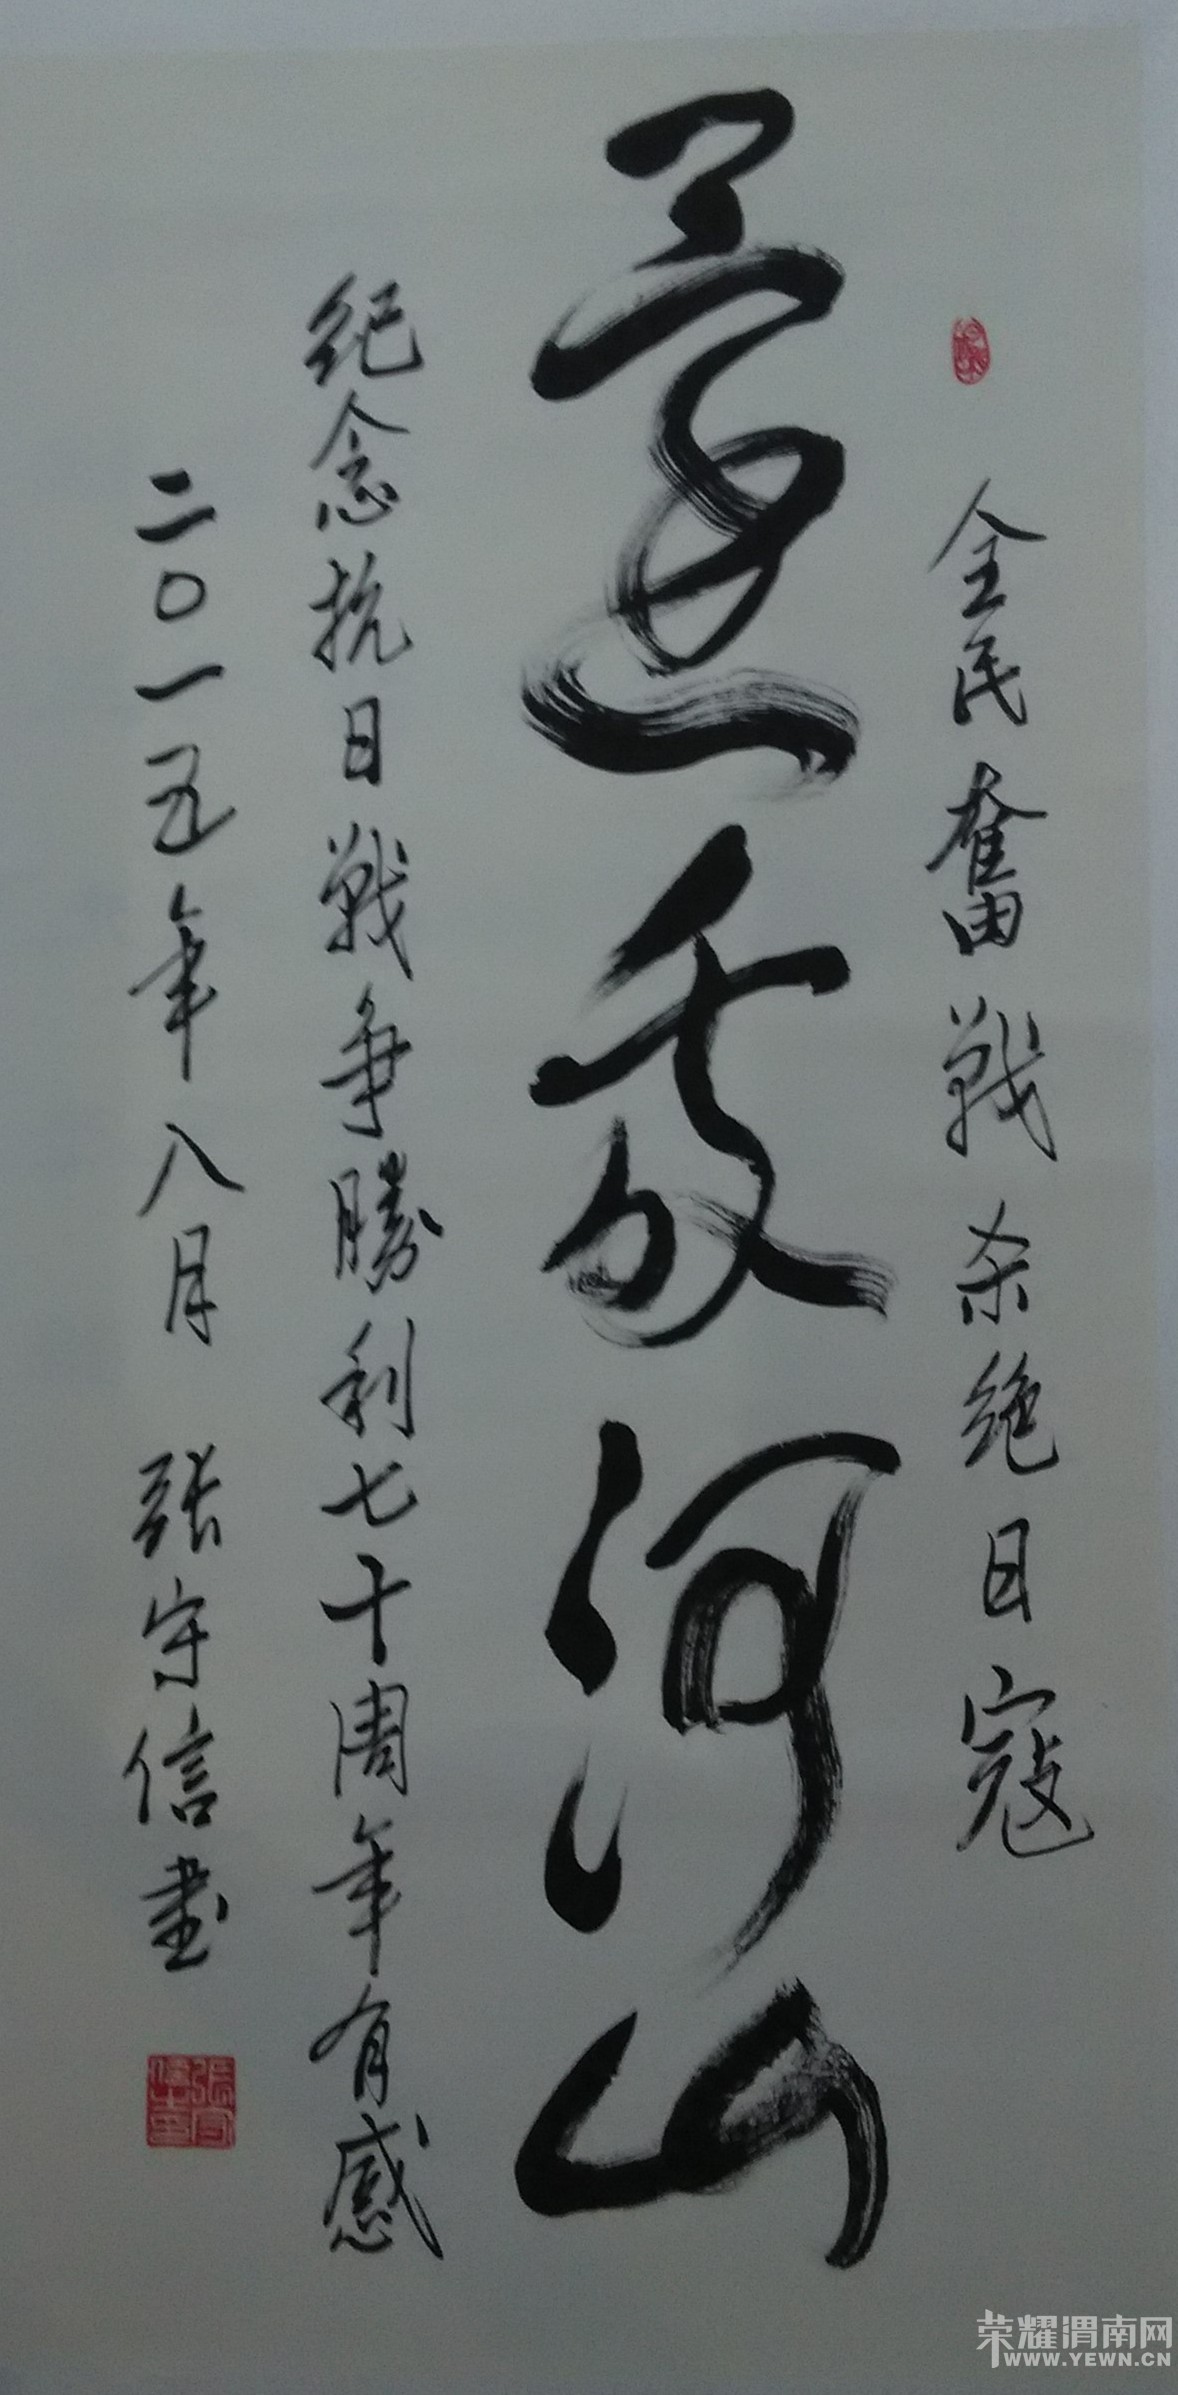 全民奮戰杀绝日寇
還我河山
纪念抗日戰争勝利七十周年有感
二〇一五年八月 張守信書
荣耀渭南网
WWW.YEWN.CN